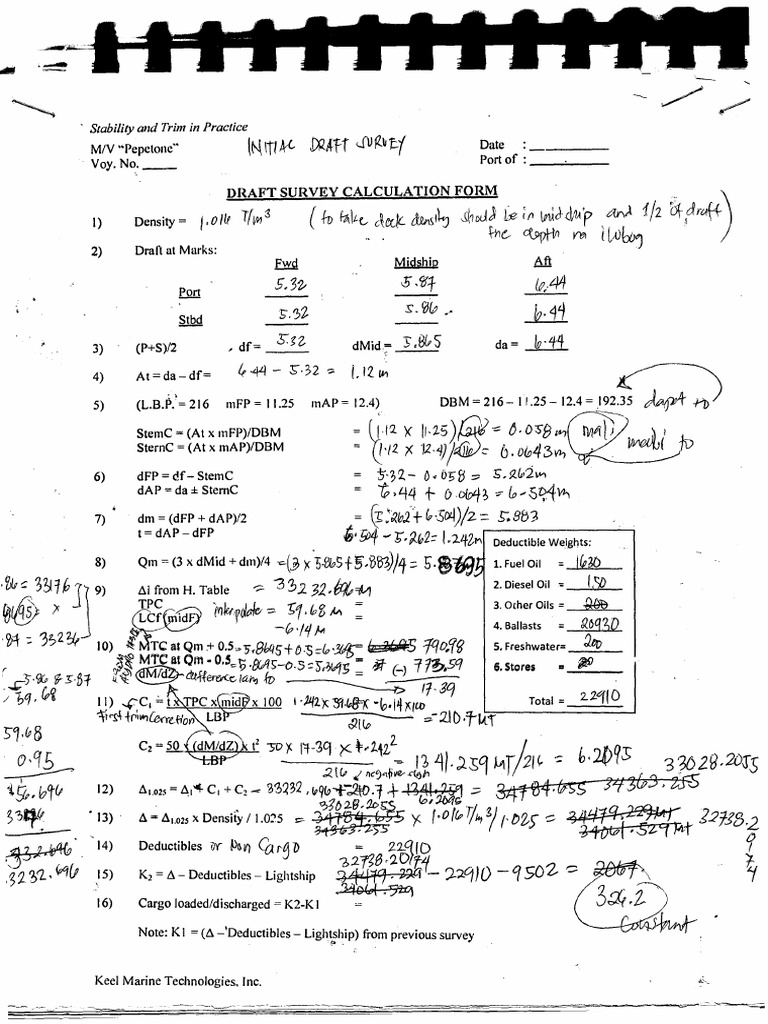 Stability and Trim in Practice
M/V "Pepetone" INITIAL DRAFT SURVEY Date : ________
Voy. No. _____ Port of : ________
DRAFT SURVEY CALCULATION FORM
1) Density = 1.016 T/m³ (to take dock density should be in midship and 1/2 of draft
the depth na ilubog
2) Draft at Marks:
Fwd Midship Aft
Port 5.32 5.87 6.44
Stbd 5.32 5.86 6.44
3) (P+S)/2 df = 5.32 dMid = 5.865 da = 6.44
4) At = da – df = 6.44 - 5.32 = 1.12 m
5) (L.B.P. = 216 mFP = 11.25 mAP = 12.4) DBM = 216 – 11.25 – 12.4 = 192.35 dapat to
StemC = (At x mFP)/DBM = (1.12 x 11.25)/216 = 0.058 m mali
SternC = (At x mAP)/DBM = (1.12 x 12.4)/216 = 0.0643 m
6) dFP = df – StemC = 5.32 - 0.058 = 5.262m
dAP = da ± SternC = 6.44 + 0.0643 = 6.504m
7) dm = (dFP + dAP)/2 = (5.262 + 6.504)/2 = 5.883
t = dAP – dFP 6.504 - 5.262 = 1.242m
8) Qm = (3 x dMid + dm)/4 = (3 x 5.865 + 5.883)/4 = 5.8695
Deductible Weights:
1. Fuel Oil = 1630
2. Diesel Oil = 150
3. Other Oils = 200
4. Ballasts = 20930
5. Freshwater= 200
6. Stores = 20
Total = 22910
9) Δi from H. Table = 33232.696 m
TPC =
LCf (midF) interpolate = 59.68 m
-6.14 m
10) MTC at Qm + 0.5 = 5.8695 + 0.5 = 6.3695 = 6.3695 790.98
MTC at Qm - 0.5 = 5.8695 - 0.5 = 5.3695 = (-) 773.59
dM/dZ - difference 17.39
11) C₁ = t x TPC x midF x 100 1.242 x 59.68 x -6.14 x 100
LBP 216 = -210.7 MT
first trim correction
C₂ = 50 x (dM/dZ) x t² 50 x 17.39 x 1.242²
LBP 216 = 1341.259 MT/216 = 6.2095
negative sign
33028.2055
12) Δ₁.₀₂₅ = Δ₁ + C₁ + C₂ - 33232.696 + -210.7 + 1341.259 = 34784.655 34363.255
6.2095
33028.2055
13) Δ = Δ₁.₀₂₅ x Density / 1.025 = 34784.655 x 1.016 T/m³/1.025 = 34479.229 MT 32738.2
34363.255 34061.529 MT
0974
14) Deductibles or Non Cargo = 22910
32738.20174
15) K₂ = Δ – Deductibles – Lightship 34479.229 - 22910 - 9502 = 2067
34061.529
326.2
Constant
16) Cargo loaded/discharged = K2-K1 =
Note: K1 = (Δ – Deductibles – Lightship) from previous survey
.86 = 33176
= x
.87 = 33236
5.86 & 5.87
59.68
59.68
0.95
56.696
3232.696
Keel Marine Technologies, Inc.